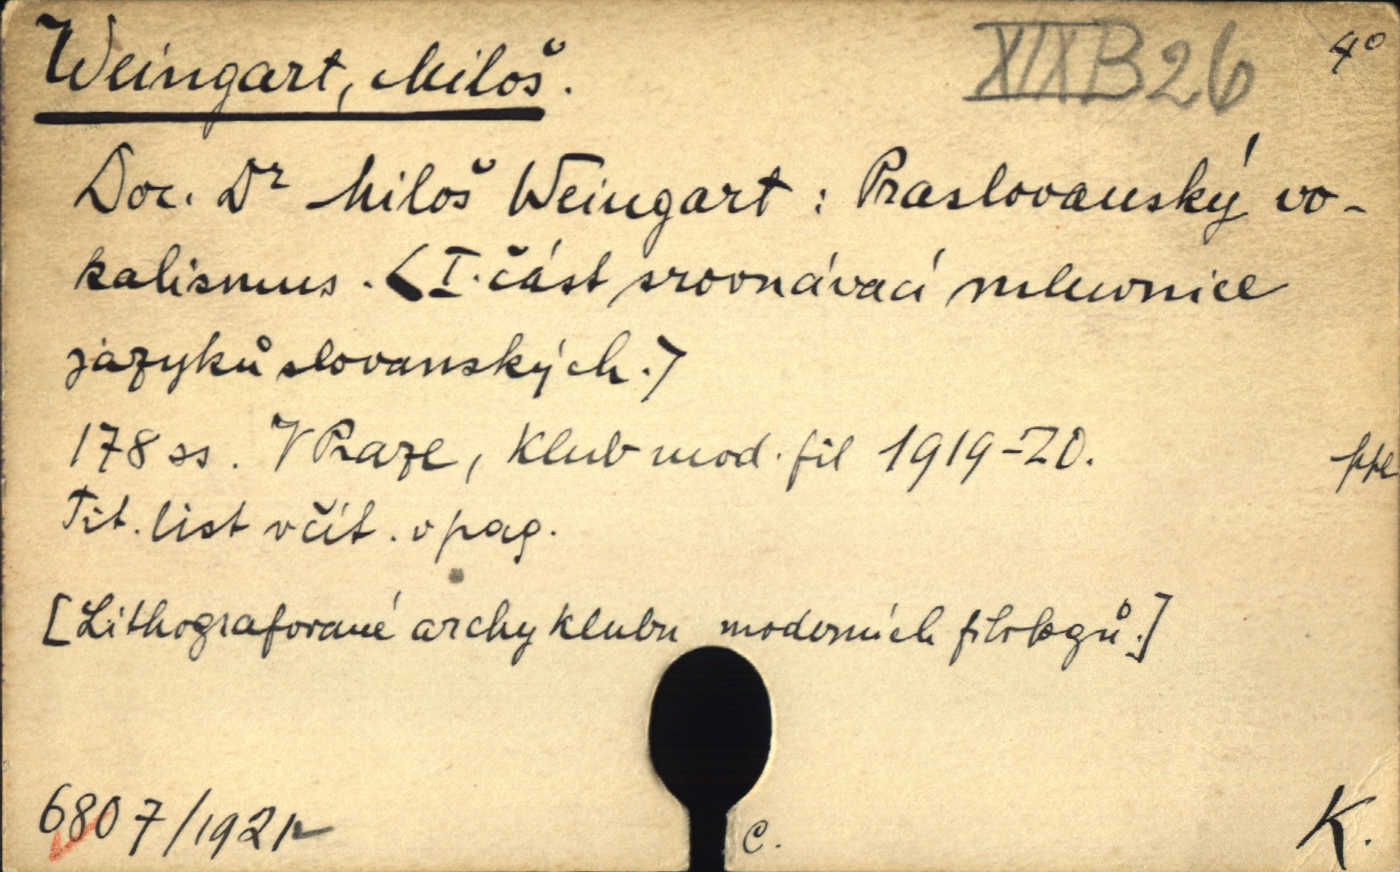 Weingart, Miloš. XIXB26 4°
Doc. Dr Miloš Weingart : Praslovanský vo-
kalismus. (I. část srovnávací mluvnice
jazyků slovanských.)
178 ss. V Praze, Klub mod. fil 1919-20. ppe
Tit. list včít. v pag.
[Lithografované archy klubu moderních filologů.]
6807/1921
C. K.